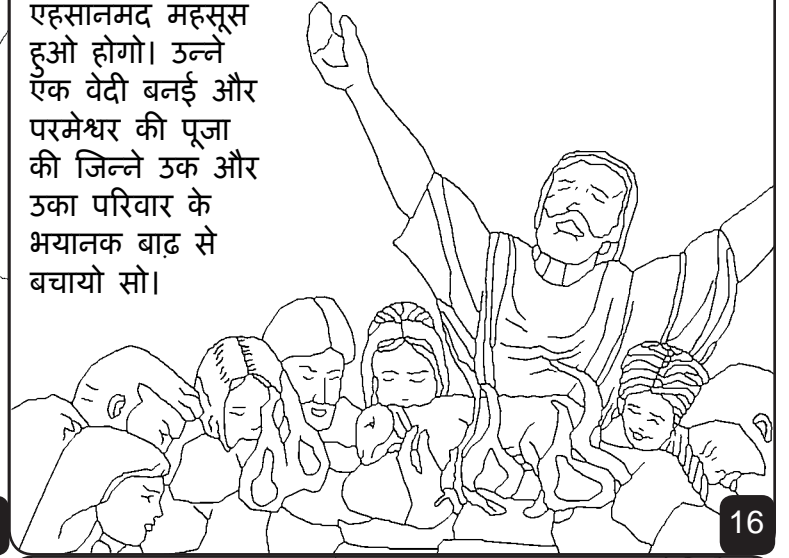 एहसानमंद महसूस
हुओ होगो। उन्ने
एक वेदी बनई और
परमेश्वर की पूजा
की जिन्ने उक और
उका परिवार के
भयानक बाढ़ से
बचायो सो।
16